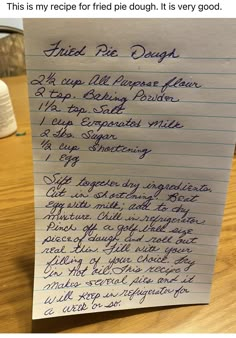 This is my recipe for fried pie dough. It is very good.
Fried Pie Dough
2 1/2 cup All Purpose flour
2 tsp. Baking Powder
1 1/2 tsp Salt
1 cup Evaporated Milk
2 Tbs Sugar
1/2 cup Shortening
1 egg
Sift together dry ingredients
Cut in shortening. Beat
egg with milk, add to dry
mixture. Chill in refrigerator
Pinch off a golf ball size
piece of dough and roll out
real thin. Fill with your
filling of your choice. Fry
in Hot oil. This recipe
makes several pies and it
will keep in refrigerator for
a week or so.